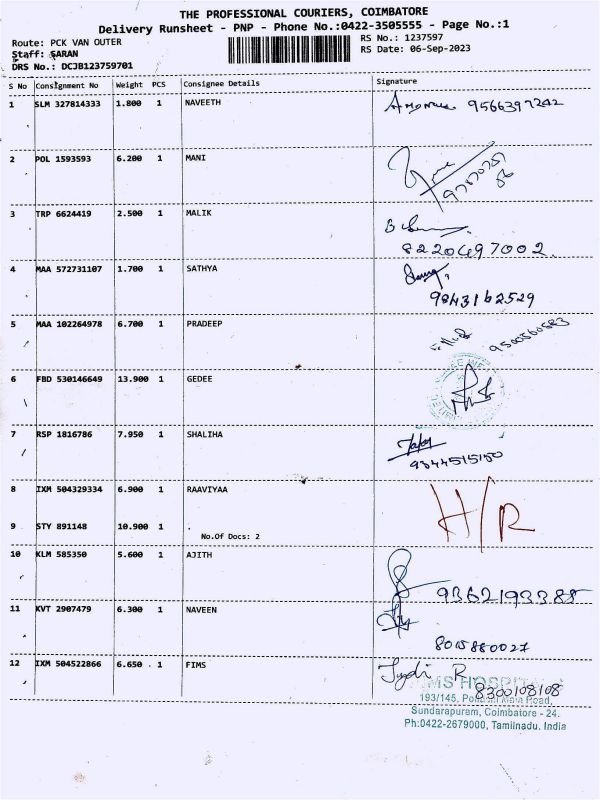 THE PROFESSIONAL COURIERS, COIMBATORE
Delivery Runsheet - PNP - Phone No.:0422-3505555 - Page No.:1
Route: PCK VAN OUTER
Staff: SARAN
DRS No.: DCJB123759701
RS No.: 1237597
RS Date: 06-Sep-2023
S No Consignment No Weight PCS Consignee Details Signature
1 SLM 327814333 1.800 1 NAVEETH 9566397242
2 POL 1593593 6.200 1 MANI
3 TRP 6624419 2.500 1 MALIK
8220697002
4 MAA 572731107 1.700 1 SATHYA
9843162529
5 MAA 102264978 6.700 1 PRADEEP
6 FBD 530146649 13.900 1 GEDEE
7 RSP 1816786 7.950 1 SHALIHA
9344515150
8 IXM 504329334 6.900 1 RAAVIYAA H/R
9 STY 891148 10.900 1
No.Of Docs: 2
10 KLM 585350 5.600 1 AJITH
9362193388
11 KVT 2907479 6.300 1 NAVEEN
8015880027
12 IXM 504522866 6.650 1 FIMS
8300108108
193/145, Main Road,
Sundarapuram, Coimbatore - 24.
Ph:0422-2679000, Tamilnadu. India